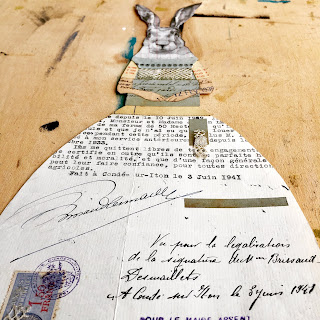 depuis le 10 Juin 19
Monsieur et Madame
de ma ferme de 50 Hect
cule et que je n'ai eu Loue
ependant cette période, ins M.
à mon service antérieure depuis
bre 1933.
Ils me quittent libres de t engagement
certifie en outre qu'ils sont arfaite h
bilité et moralité, et que d'une façon générale
peut leur faire confiance, pour tous trav
agricoles.
Fait à Condé-sur-Iton le 3 Juin 1941
Vu pour la légalisation
de la signature de M Brissaud
Desmaillets
à Condé sur Iton le 3 juin 1941
POUR LE MAIRE ABSENT